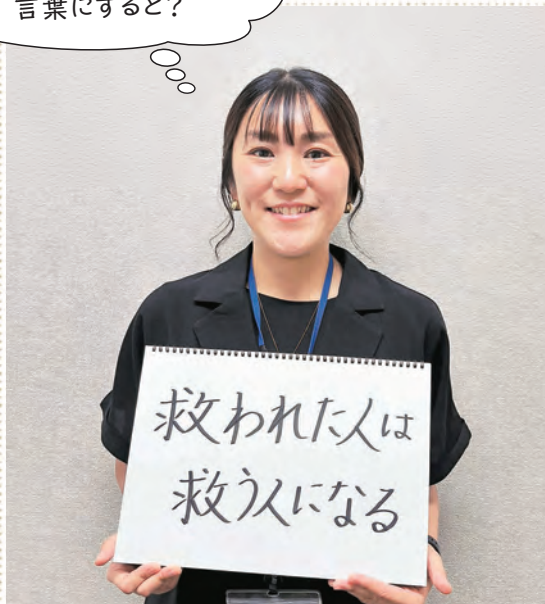 言葉にすると？
救われた人は
救う人になる